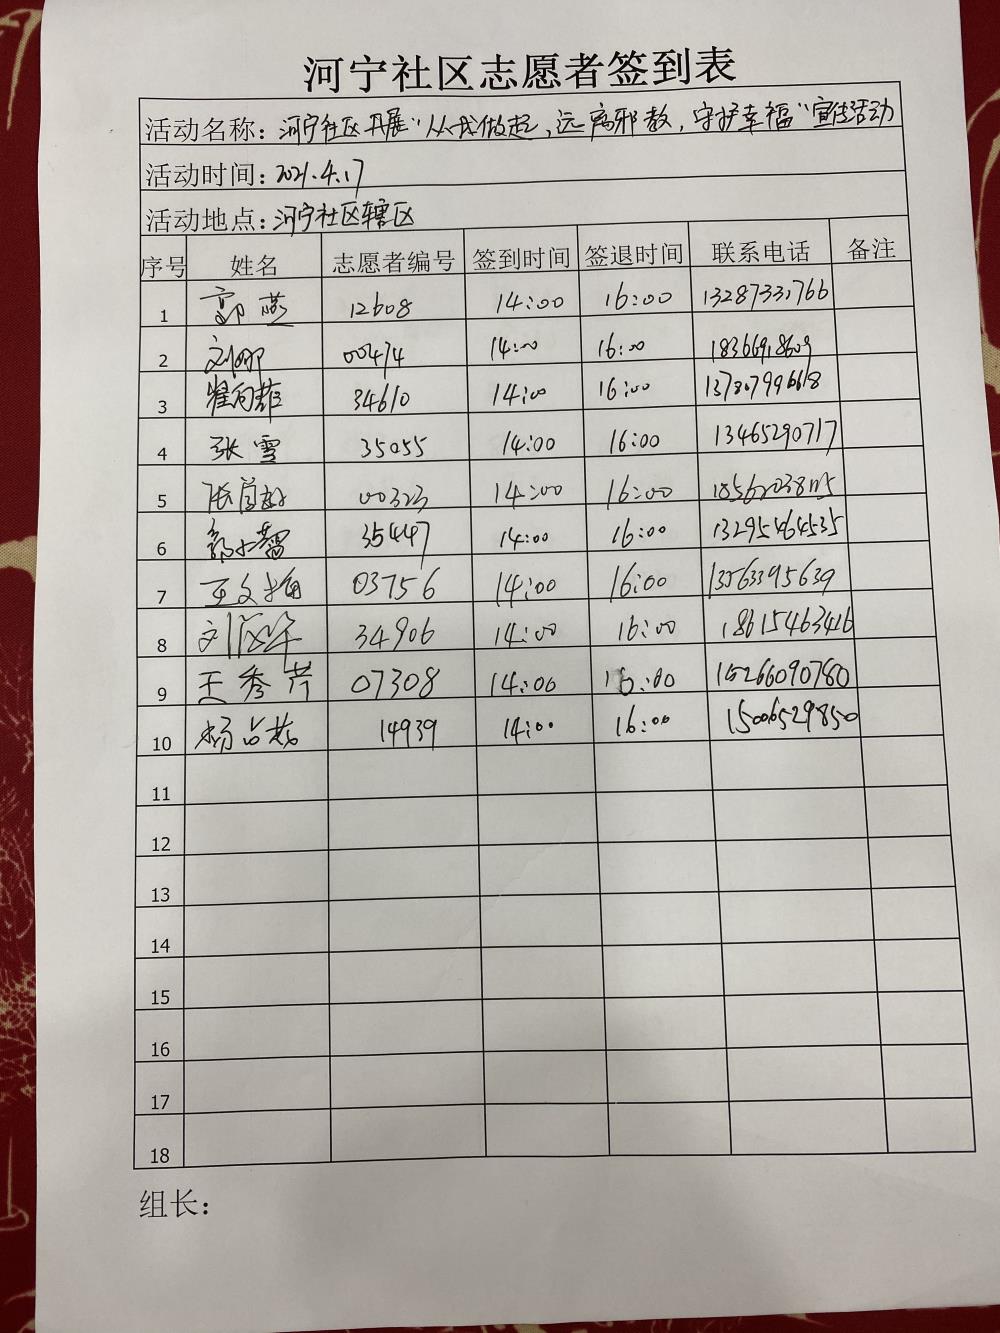 河宁社区志愿者签到表
活动名称：河宁社区开展"从我做起，远离邪教，守护幸福"宣传活动
活动时间：2021.4.17
活动地点：河宁社区辖区
序号 姓名 志愿者编号 签到时间 签退时间 联系电话 备注
1 郭燕 12608 14:00 16:00 13287331766
2 刘娜 00474 14:00 16:00 18366918609
3 34610 14:00 16:00 137807996618
4 张雪 35055 14:00 16:00 13465290717
5 00323 14:00 16:00
6 35447 14:00 16:00 13295464535
7 王文梅 03756 14:00 16:00 13563395639
8 34906 14:00 16:00 18615463416
9 王秀芹 07308 14:00 16:00 15266090780
10 14939 14:00 16:00 15006529850
11
12
13
14
15
16
17
18
组长：